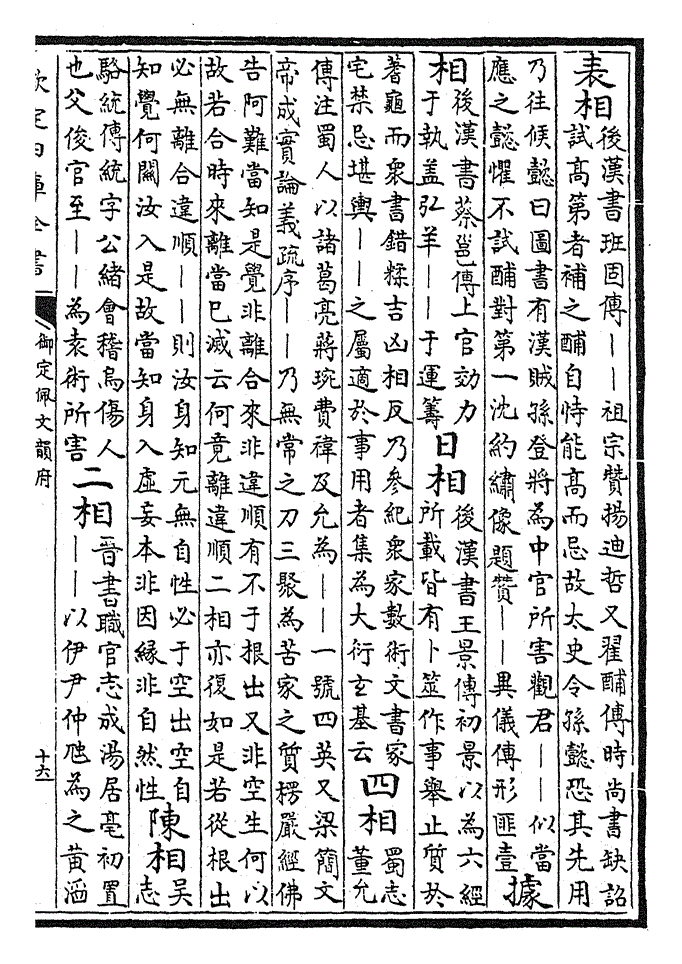 表相後漢書班固傳——祖宗贊揚迪哲又翟酺傳時尚書缺詔
試髙第者補之酺自恃能髙而忌故太史令孫懿恐其先用
乃往候懿曰圖書有漢賊孫登將為中官所害觀君——似當
應之懿懼不試酺對第一沈約繡像題贊——異儀傳形匪壹據
相後漢書蔡邕傳上官効力
于執盖弘羊——于運籌
日相後漢書王景傳初景以為六經
所載皆有卜筮作事舉止質於
蓍龜而衆書錯糅吉凶相反乃參紀衆家數術文書冢
宅禁忌堪輿——之屬適於事用者集為大衍玄基云
四相蜀志
董允
傳注蜀人以諸葛亮蔣琬費禕及允為——一號四英又梁簡文
帝成實論義疏序——乃無常之刀三聚為苦家之質楞嚴經佛
告阿難當知是覺非離合來非違順有不于根出又非空生何以
故若合時來離當已滅云何竟離違順二相亦復如是若從根出
必無離合違順——則汝身知元無自性必于空出空自
知覺何闗汝入是故當知身入虛妄本非因緣非自然性
陳相吳
志
駱統傳統字公緒會稽烏傷人
也父俊官至——為袁術所害
二相晉書職官志成湯居亳初置
——以伊尹仲虺為之黄滔
欽定四庫全書
御定佩文韻府
十六